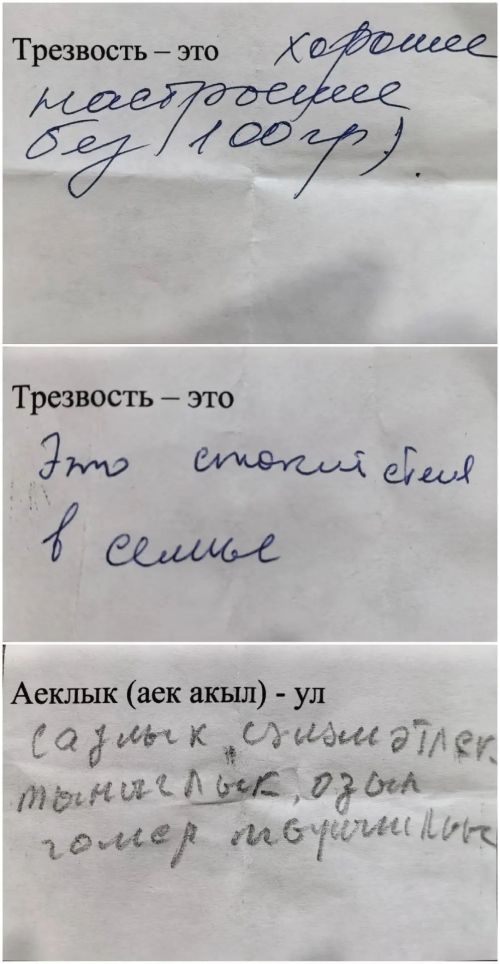 Трезвость – это хорошее
настроение
без 100гр).
Трезвость – это
Это спокойствия
в семье
Аеклык (аек акыл) - ул
саулык, сәламәтлек,
тынычлык, озын
гомер